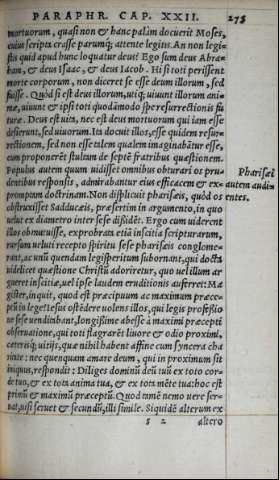 PARAPHR. CAP. XXII. 275
mortuorum, quasi non & hanc palàm docuerit Moses,
cuius scripta crasse parumq; attente legitis. An non legi-
stis quid apud hunc loquatur deus? Ego sum deus Abra-
ham, & deus Isaac, & deus Iacob. Hi si toti perissent
morte corporum, non diceret se esse deum illorum, sed
fuisse. Quòd si est deus illorum, utiq; uiuunt illorum ani-
mæ, uiuunt & ipsi toti quodãmodo spe resurrectionis fu
turæ. Deus est uita, nec est deus mortuorum qui iam esse
desierunt, sed uiuorum. Ita docuit illos, esse quidem resur-
rectionem, sed non esse talem qualem imaginabãtur esse,
cum proponerẽt stultam de septẽ fratribus quæstionem.
Populus autem quum uidisset omnibus obturari os pru-
dentibus responsis, admirabantur eius efficacem & ex-
promptam doctrinam. Non displicuit pharisæis, quòd os
obstruxisset Sadducæis, præsertim in argumento, in quo
uelut ex diametro inter sese dissidẽt. Ergo cum uiderent
illos obmutuisse, exprobrata etiã inscitia scripturarum,
rursum ueluti recepto spiritu sese pharisæis conglome-
rant, ac unũ quendam legisperitum subornant, qui docta
uidelicet quæstione Christũ adoriretur, quo uel illum ar
gueret inscitiæ, uel ipse laudem eruditionis auferret: Ma
gister, inquit, quod est præcipuum ac maximum præce-
ptũ in lege? Iesus ostẽdere uolens illos, qui legis professio
ne sese uenditabant, longissime abesse à maximi præcepti
obseruatione, qui toti flagrarẽt liuore & odio proximi,
ceterisq; uitijs, quæ nihil habent affine cum syncera cha
ritate: nec quenquam amare deum, qui in proximum sit
iniquus, respondit: Diliges dominũ deũ tuũ ex toto cor-
de tuo, & ex tota anima tua, & ex tota mẽte tua: hoc est
primũ & maximũ præceptũ. Quod tamẽ nemo uere ser-
uat, nisi seruet & secundũ, illi simile. Siquidẽ alterum ex
s 2 altero
Pharisæi
autem audiu
entes.